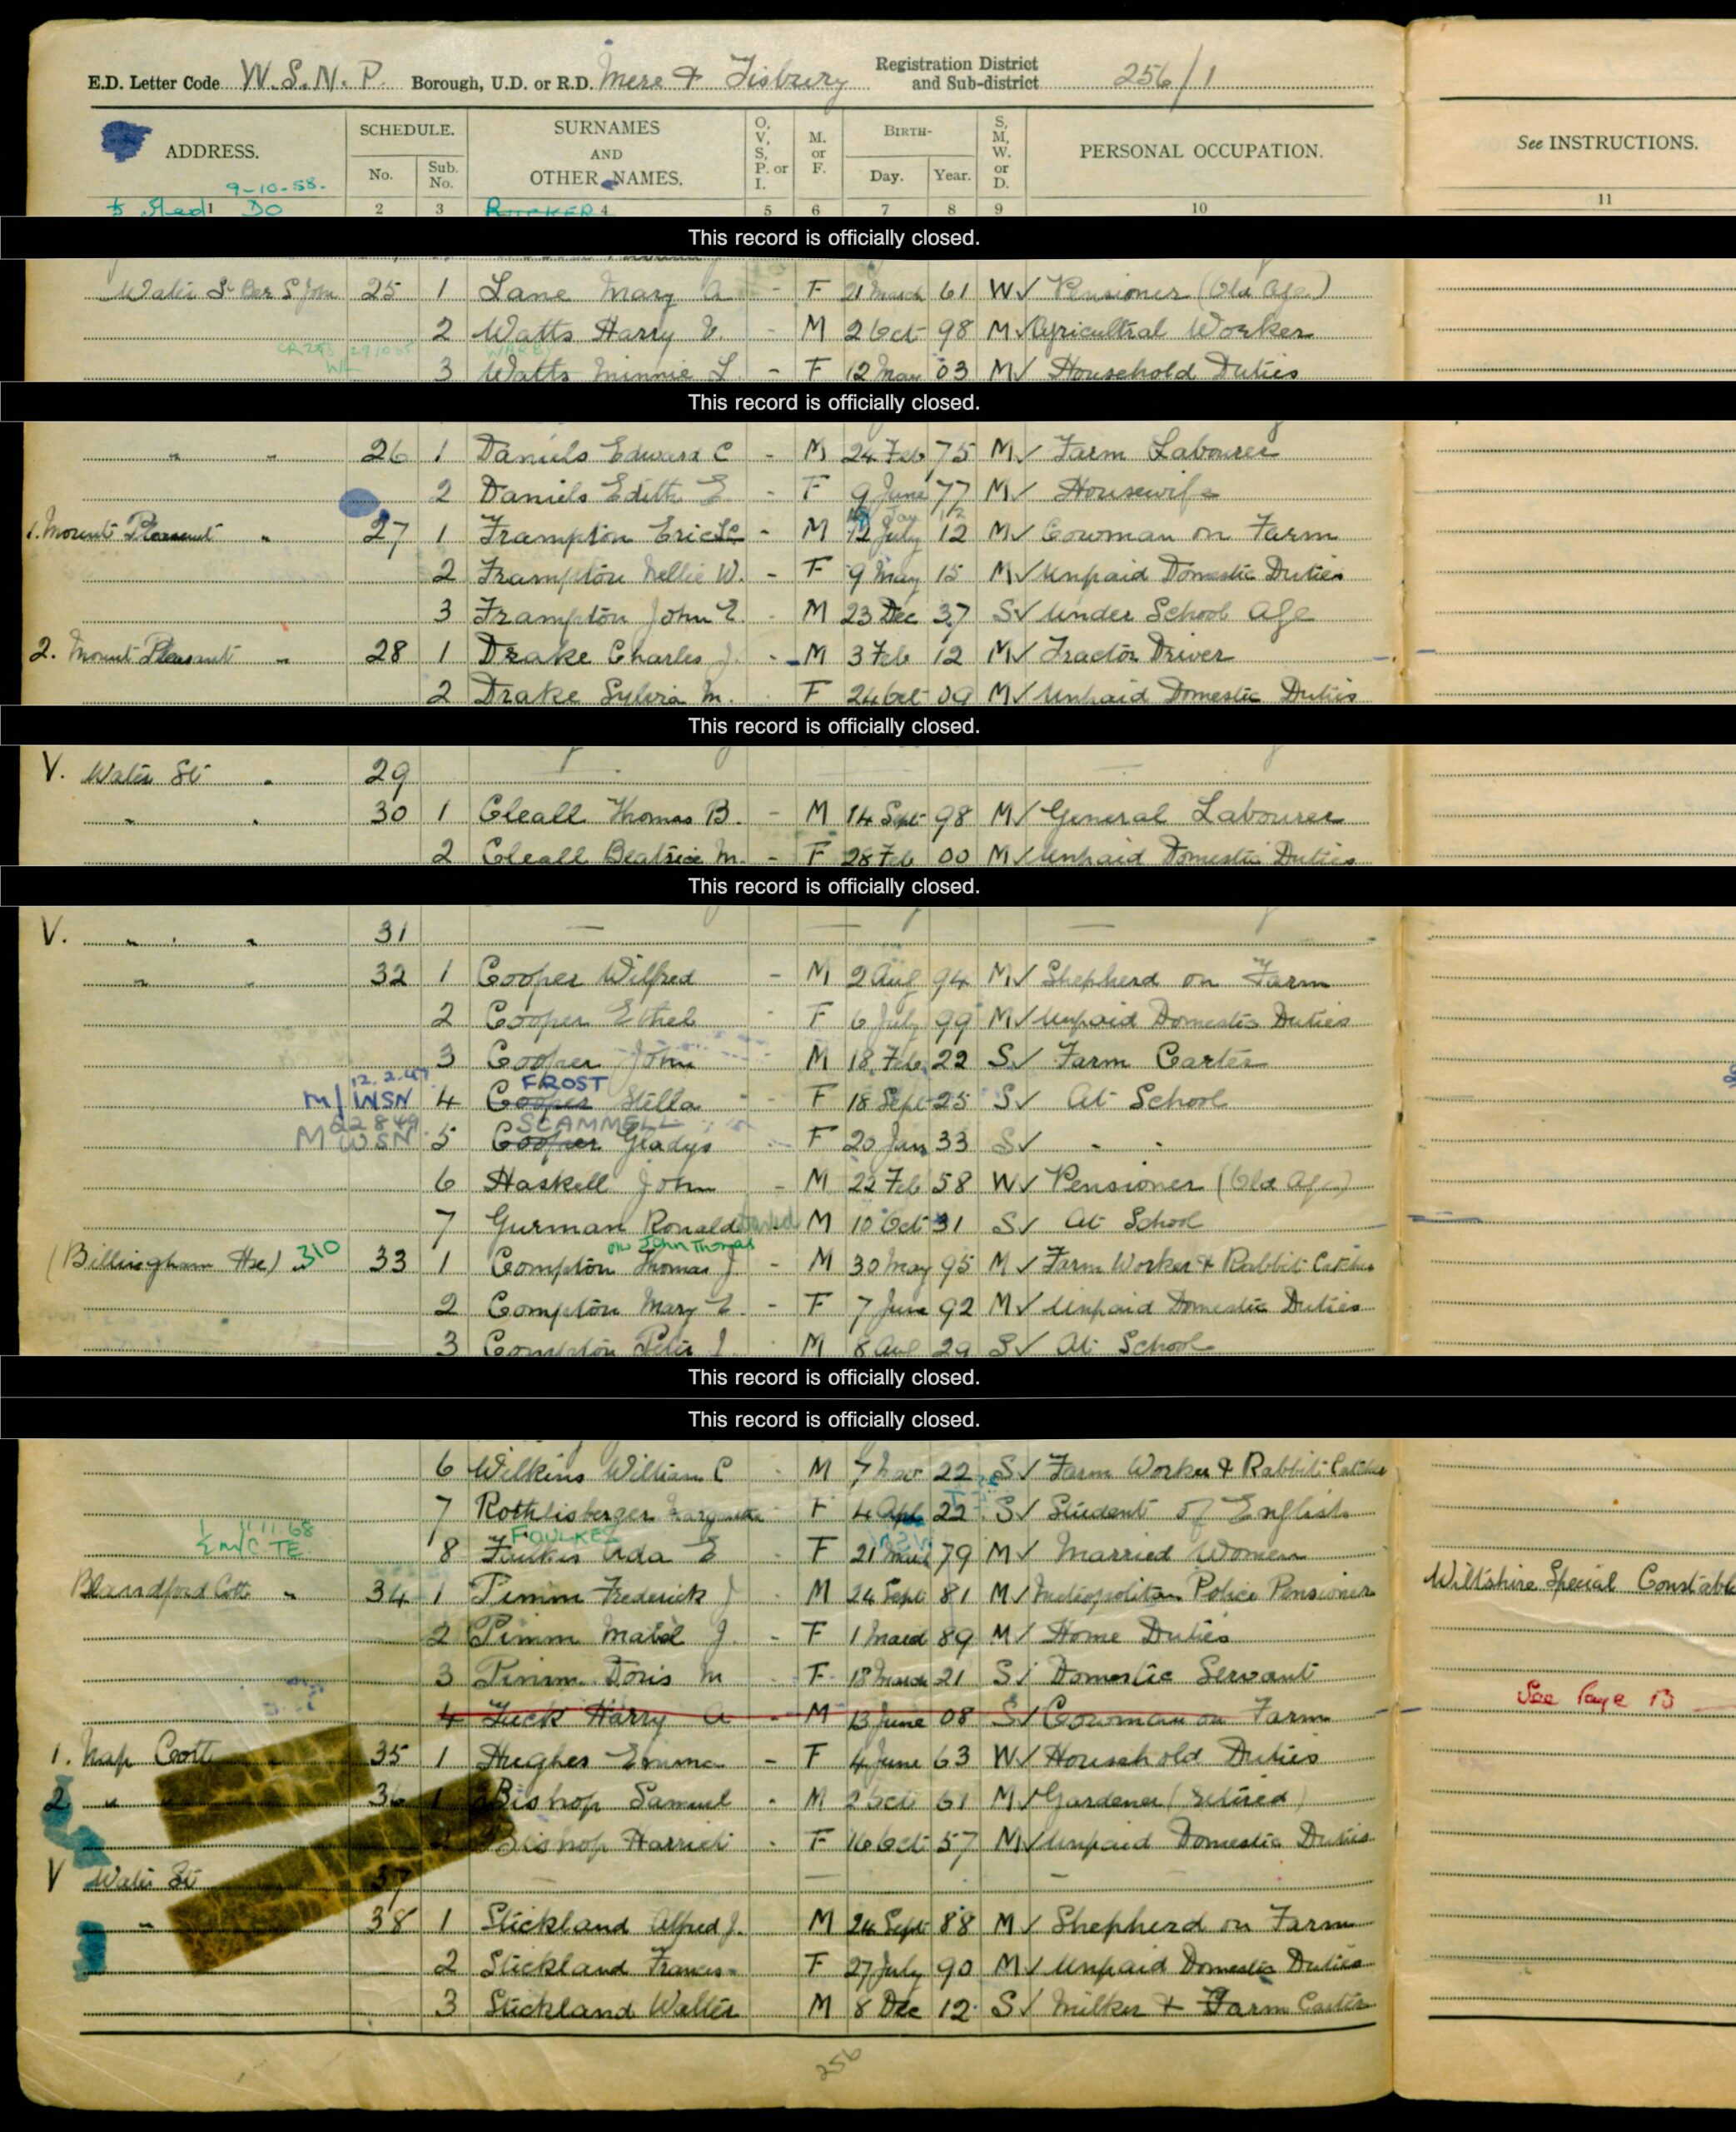 E.D. Letter Code W.S.N.P. Borough, U.D. or R.D. Mere & Tisbury Registration District and Sub-district 256/1
ADDRESS. SCHEDULE. No. Sub. No. SURNAMES AND OTHER NAMES. O, V, S, P. or I. M. or F. BIRTH- Day. Year. S, M, W. or D. PERSONAL OCCUPATION. See INSTRUCTIONS.
9-10-58.
1 DO 2 3 RUCKER 4 5 6 7 8 9 10 11
This record is officially closed.
Water St Ber S John 25 1 Lane Mary A - F 21 March 61 W ✓ Pensioner (Old Age)
2 Watts Harry V. - M 2 Oct 98 M ✓ Agricultral Worker
3 Watts Minnie L. - F 12 May 03 M ✓ Household Duties
This record is officially closed.
" " 26 1 Daniels Edward C - M 24 Feb 75 M ✓ Farm Labourer
2 Daniels Edith E - F 9 June 77 M ✓ Housewife
1. Mount Pleasant " 27 1 Frampton Eric - M 12 July 12 M ✓ Cowman on Farm
2 Frampton Nellie W. - F 9 May 15 M ✓ Unpaid Domestic Duties
3 Frampton John E. - M 23 Dec 37 S ✓ Under School Age
2. Mount Pleasant " 28 1 Drake Charles J. - M 3 Feb 12 M ✓ Tractor Driver
2 Drake Sylvia M. F 24 Oct 09 M ✓ Unpaid Domestic Duties
This record is officially closed.
V. Water St " 29 —
" " 30 1 Cleall Thomas B. - M 14 Sept 98 M ✓ General Labourer
2 Cleall Beatrice M. - F 28 Feb 00 M ✓ Unpaid Domestic Duties
This record is officially closed.
V. " " " 31 — — —
" " 32 1 Cooper Wilfred - M 2 Aug 94 M ✓ Shepherd on Farm
2 Cooper Ethel - F 6 July 99 M ✓ Unpaid Domestic Duties
3 Cooper John M 18 Feb 22 S ✓ Farm Carter
12.2.47 FROST
M/ WSN 4 Cooper Stella - F 18 Sept 25 S ✓ At School
22 8 49 SCAMMELL
M WSN 5 Cooper Gladys F 20 Jan 33 S ✓ " "
6 Haskell John - M 22 Feb 58 W ✓ Pensioner (Old Age)
7 Gurman Ronald M 10 Oct 31 S ✓ At School
orw John Thomas
(Billingham Hse) 310 33 1 Compton Thomas J - M 30 May 95 M ✓ Farm Worker & Rabbit Catcher
2 Compton Mary E - F 7 June 92 M ✓ Unpaid Domestic Duties
3 Compton Peter J M 8 Aug 29 S ✓ At School
This record is officially closed.
This record is officially closed.
6 Wilkins William C M 7 Nov 22 S ✓ Farm Worker & Rabbit Catcher
7 Rothlisberger F 4 Apl 22 S ✓ Student of English
11.11.68 FOULKES
8 Ada E F 21 March 79 M ✓ Married Women
Blandford Cott " 34 1 Pimm Frederick J M 24 Sept 81 M ✓ Metropolitan Police Pensioner Wiltshire Special Constab
2 Pimm Mabel J. - F 1 March 89 M ✓ Home Duties
3 Pimm Doris M F 18 March 21 S ✓ Domestic Servant
4 Tuck Harry A - M 13 June 08 S ✓ Cowman on Farm See Page 13
1. Nap Cott 35 1 Hughes Emma - F 4 June 63 W ✓ Household Duties
2 " 36 1 Bishop Samuel - M 2 Oct 61 M ✓ Gardener (retired)
Bishop Harriet - F 16 Oct 57 M ✓ Unpaid Domestic Duties
V Water St 37 — —
" 38 1 Stickland Alfred J. M 24 Sept 88 M ✓ Shepherd on Farm
2 Stickland Frances F 27 July 90 M ✓ Unpaid Domestic Duties
3 Stickland Walter M 8 Dec 12 S ✓ Milker & Farm Carter
256